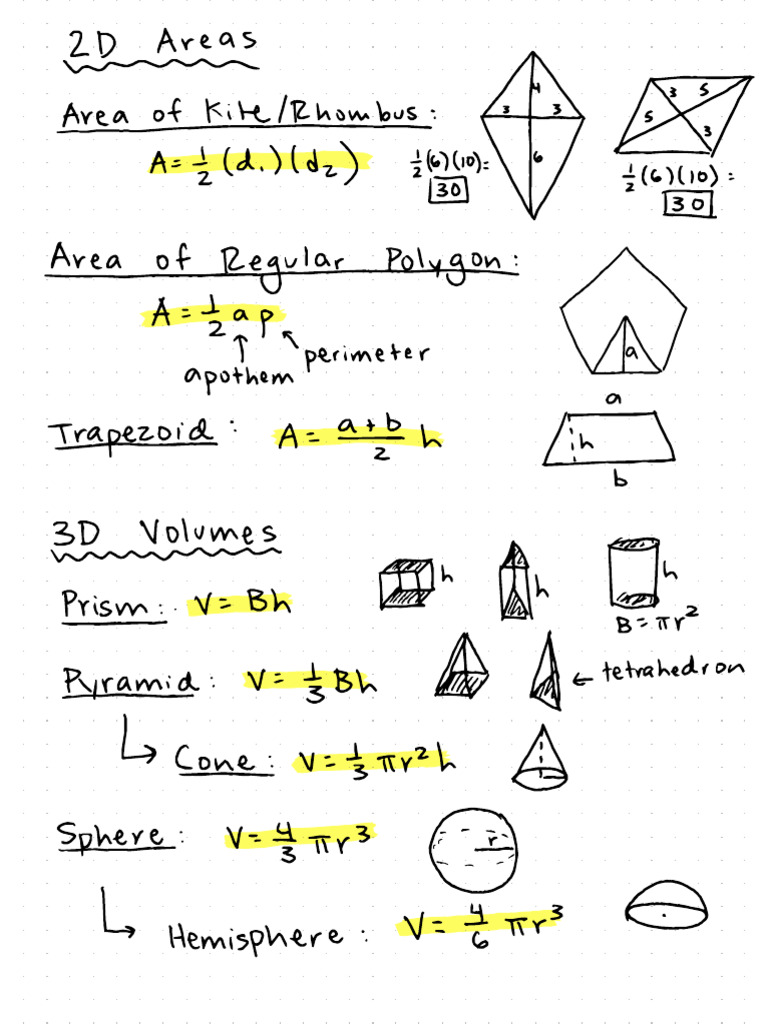 2D Areas
Area of Kite/Rhombus:
A = 1/2 (d₁)(d₂)
1/2 (6)(10) =
30
4
3 3
6
3 5
5 3
1/2 (6)(10) =
30
Area of Regular Polygon:
A = 1/2 a p
apothem
perimeter
a
Trapezoid:
A = (a+b)/2 h
a
h
b
3D Volumes
Prism: V = Bh
h
h
h
B = πr²
Pyramid: V = 1/3 Bh
← tetrahedron
Cone: V = 1/3 πr²h
Sphere: V = 4/3 πr³
r
Hemisphere: V = 4/6 πr³